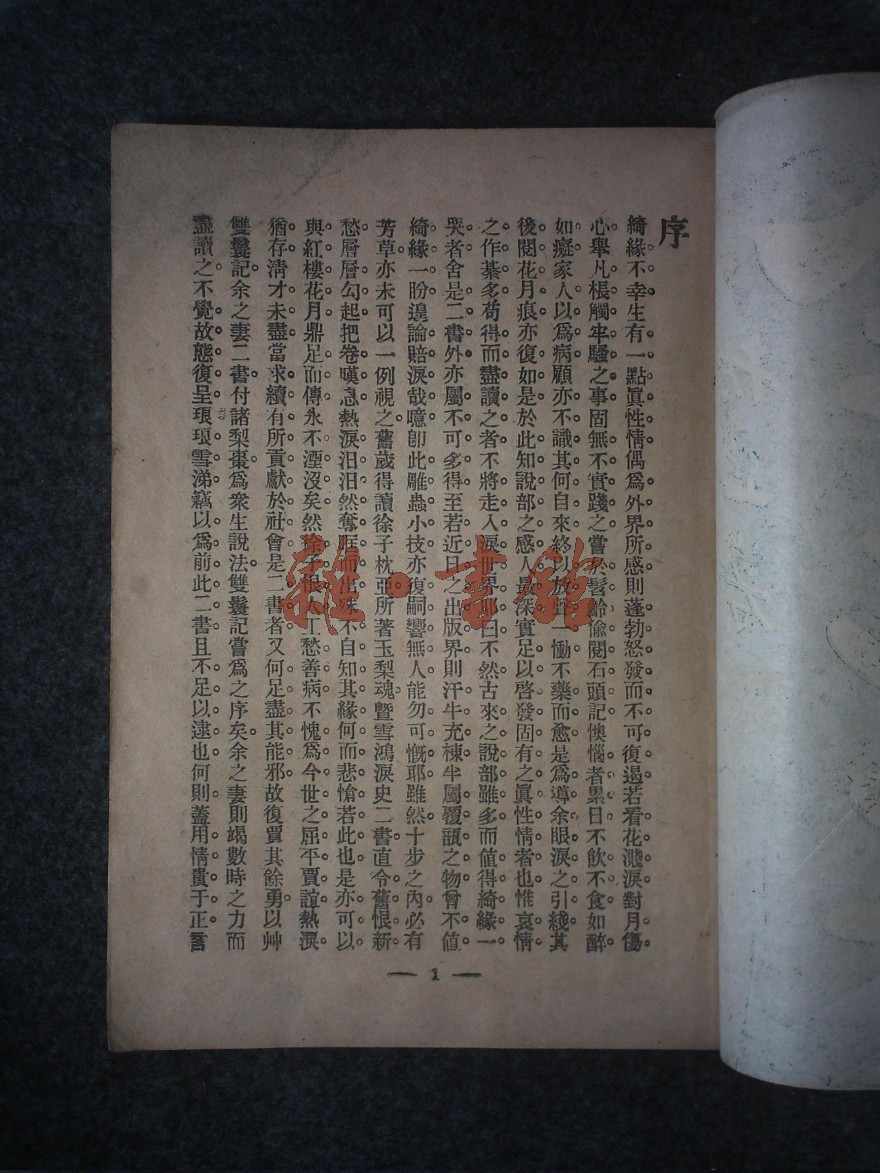 序
綺緣不幸生有一點眞性情偶爲外界所感則蓬勃怒發而不可復遏若看花濺淚對月傷
心舉凡棖觸牢騷之事固無不實踐之嘗於髫齡偸閱石頭記懊惱者累日不飲不食如醉
如癡家人以爲病顧亦不識其何自來終以放聲一慟不藥而愈是爲導余眼淚之引綫其
後閱花月痕亦復如是於此知說部之感人最深實足以啓發固有之眞性情者也惟哀情
之作綦多苟得而盡讀之者不將走入淚世界耶曰不然古來之說部雖多而値得綺緣一
哭者舍是二書外亦屬不可多得至若近日之出版界則汗牛充棟半屬覆瓿之物曾不値
綺緣一盼遑論賠淚哉噫卽此雕蟲小技亦復嗣響無人能勿可慨耶雖然十步之內必有
芳草亦未可以一例視之舊歲得讀徐子枕亞所著玉梨魂曁雪鴻淚史二書直令舊恨新
愁層層勾起把卷嘆息熱淚汨汨然奪眶而出殊不自知其緣何而悲愴若此也是亦可以
與紅樓花月鼎足而傳永不湮沒矣然徐子恨人工愁善病不愧爲今世之屈平賈誼熱淚
猶存淸才未盡當求續有所貢獻於社會是二書者又何足盡其能邪故復賈其餘勇以艸
雙鬟記余之妻二書付諸梨棗爲衆生說法雙鬟記嘗爲之序矣余之妻則竭數時之力而
盡讀之不覺故態復呈瓌瓌雪涕竊以爲前此二書且不足以逮也何則蓋用情貴于正言
— 1 —
雜·書館